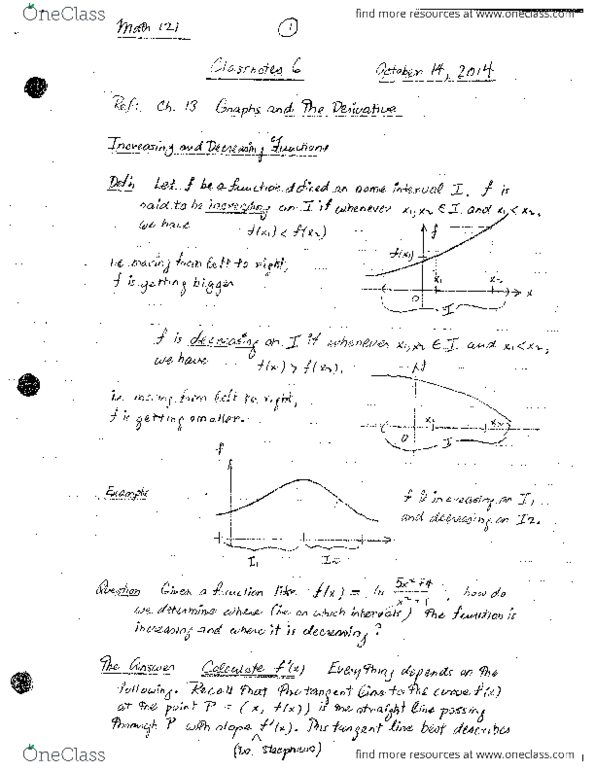 OneClass
find more resources at www.oneclass.com
Math 121
1
Classnotes 6
October 14, 2014
Ref: Ch. 13 Graphs and The Derivative
Increasing and Decreasing of Functions
Def'n Let f be a function defined on some interval I. f is
said to be increasing on I if whenever x1, x2 ∈ I and x1 < x2,
we have f(x1) < f(x2)
i.e. moving from left to right,
f is getting bigger
f
f(x1)
0
x1
x2
x
I
f is decreasing on I if whenever x1, x2 ∈ I and x1 < x2,
we have f(x1) > f(x2).
i.e. moving from left to right,
f is getting smaller.
f
0
x1
x2
I
Example
f
I1
I2
f is increasing on I1
and decreasing on I2.
Question Given a function like f(x) = ln (5x² + 4)/(x² + 1), how do
we determine where (i.e. on which intervals) the function is
increasing and where it is decreasing?
The Answer Calculate f'(x) Everything depends on the
following. Recall that the tangent line to the curve f(x)
at the point P = (x, f(x)) is the straight line passing
through P with slope f'(x). This tangent line best describes
(i.e. steepness)
OneClass
find more resources at www.oneclass.com